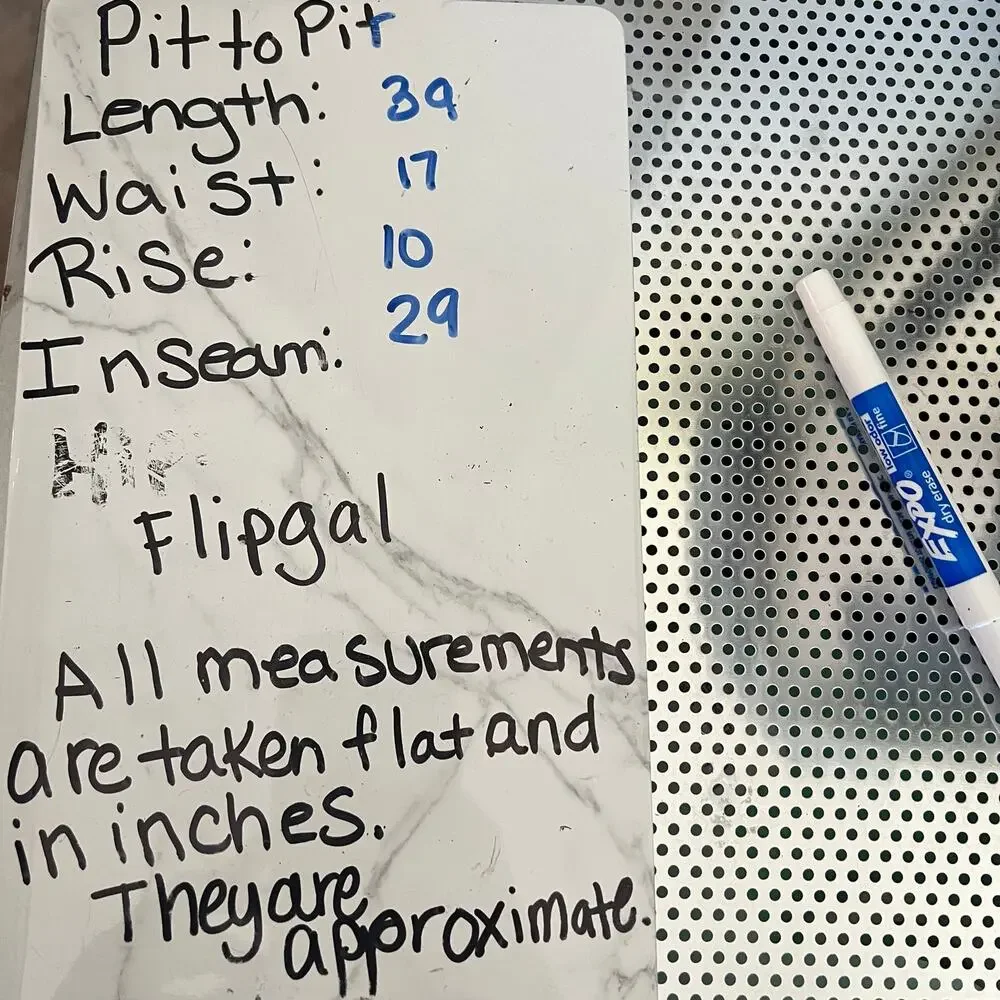 Pit to Pit
Length: 39
Waist: 17
Rise: 10
Inseam: 29
Flipgal
All measurements
are taken flat and
in inches.
They are
approximate.
EXPO® low odor fine
dry erase